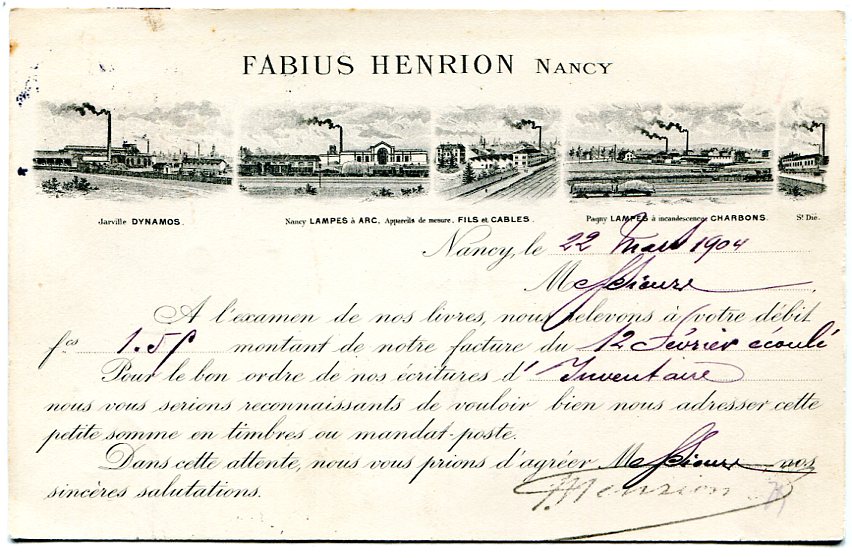 FABIUS HENRION NANCY
Jarville DYNAMOS.
Nancy LAMPES à ARC, Appareils de mesure, FILS et CABLES.
Pagny LAMPES à incandescence, CHARBONS.
St Dié.
Nancy, le 22 Mars 1904
Messieurs
A l'examen de nos livres, nous relevons à votre débit
fcs 1.5 montant de notre facture du 12 Février écoulé
Pour le bon ordre de nos écritures d'Inventaire
nous vous serions reconnaissants de vouloir bien nous adresser cette
petite somme en timbres ou mandat-poste.
Dans cette attente, nous vous prions d'agréer Messieurs nos
sincères salutations.
Henrion